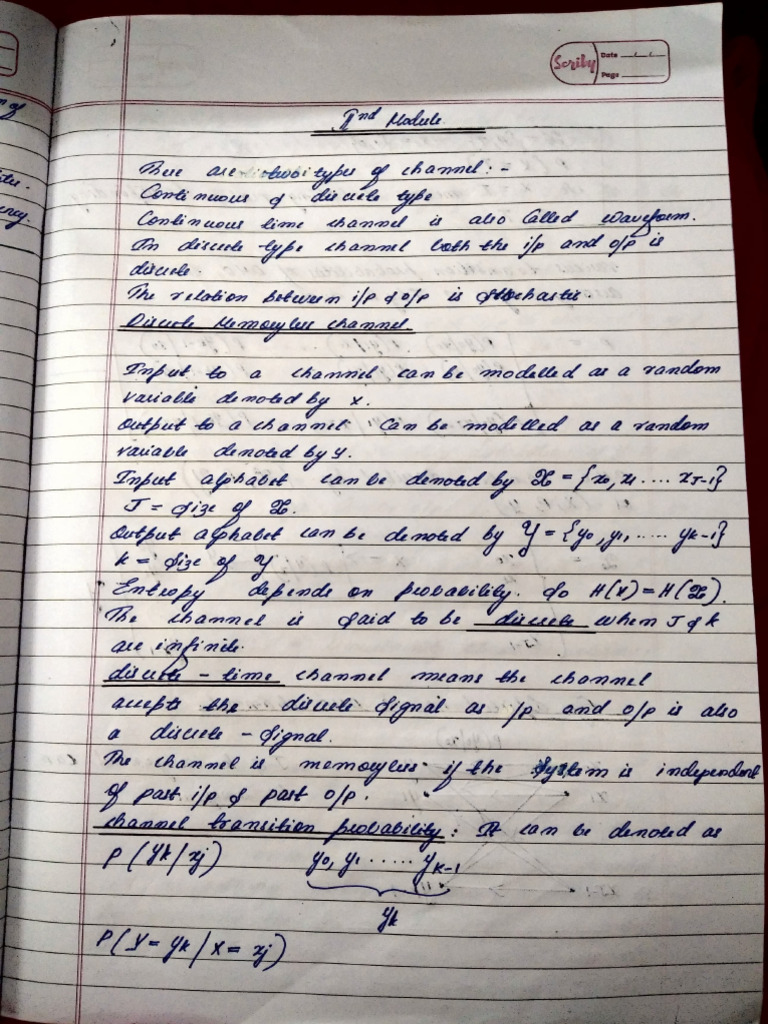 Scrity
Date
Page
IInd Module
There are two types of channel: -
Continuous & discrete type
Continuous time channel is also called waveform.
In discrete type channel both the i/p and o/p is
discrete.
The relation between i/p & o/p is stochastic.
Discrete Memoryless channel
Input to a channel can be modelled as a random
variable denoted by x.
Output to a channel can be modelled as a random
variable denoted by y.
Input alphabet can be denoted by 𝒳 = {x0, x1 .... xJ-1}
J = size of 𝒳.
Output alphabet can be denoted by Y = {y0, y1, ..... yk-1}
k = size of Y
Entropy depends on probability. So H(X) = H(𝒳).
The channel is said to be discrete when J & k
are infinite.
discrete - time channel means the channel
accepts the discrete signal as i/p and o/p is also
a discrete - signal.
The channel is memoryless if the system is independent
of past i/p & past o/p.
channel transition probability: It can be denoted as
P(yk/xj) y0, y1 ...... yK-1
yk
P(Y = yk / X = xj)